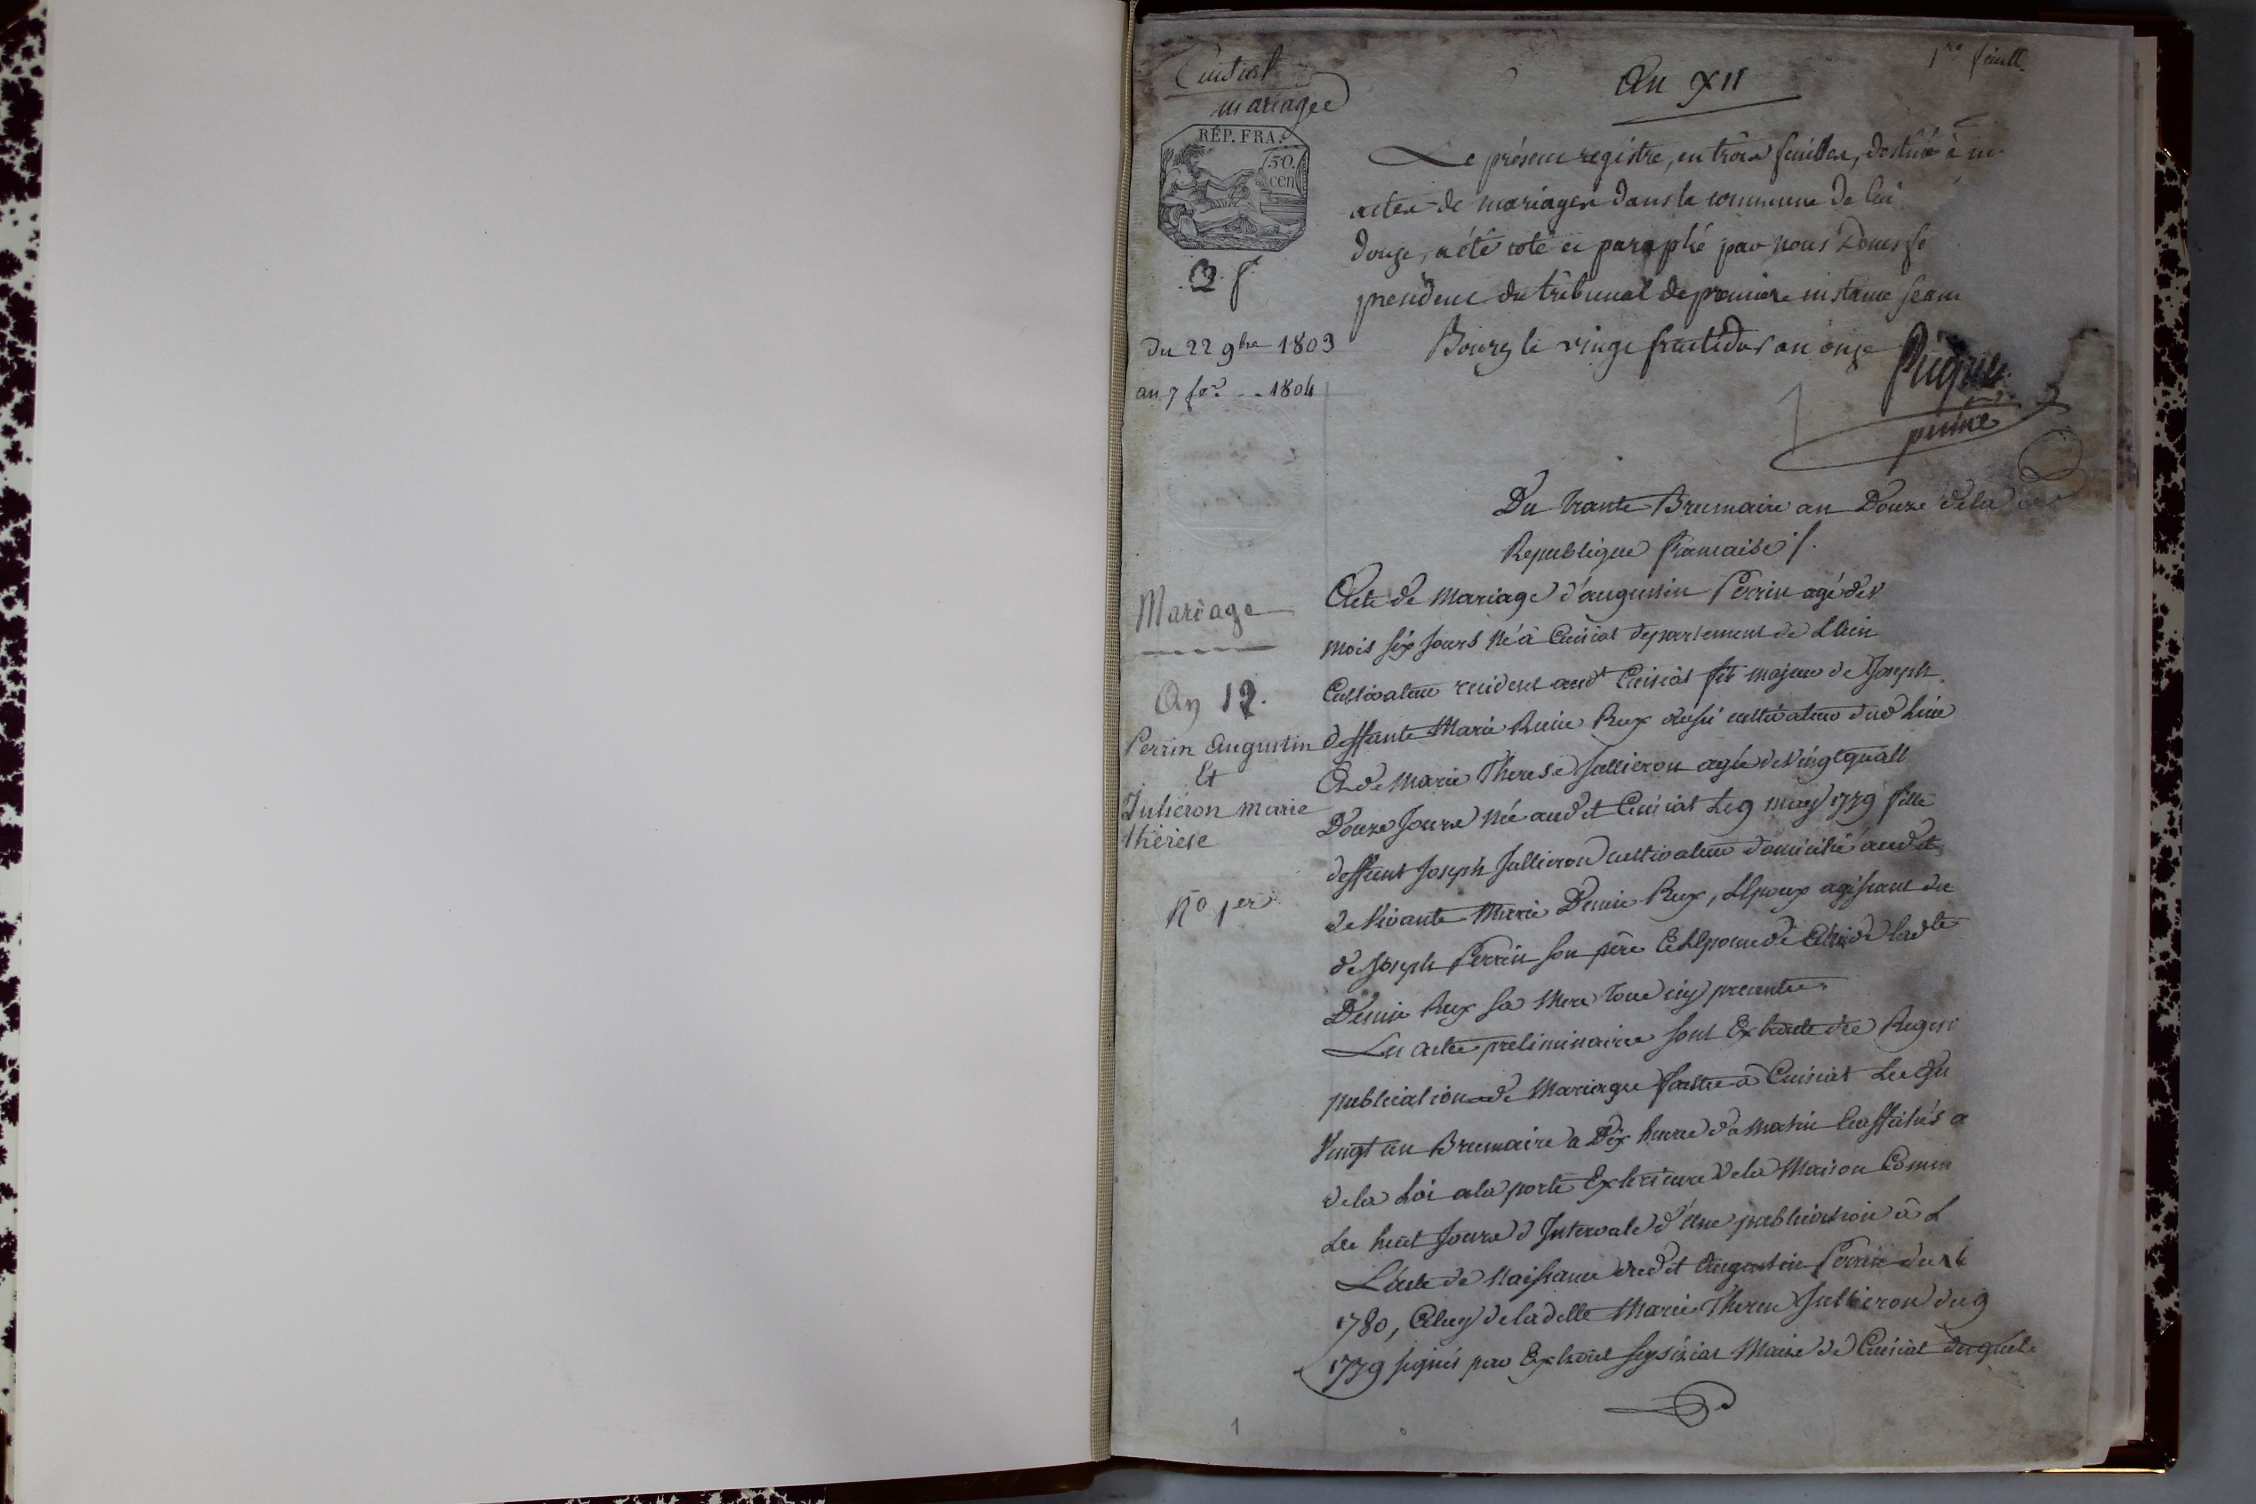 Cuisiat
mariages
An XII
1re feuill
RÉP. FRA.
50.
cen
Le présent registre, en trois feuilles, destiné à
actes de mariages dans la commune de Cui
douze, a été coté et paraphé par nous
president du tribunal de premiere instance seant
Bourg le vingt fructidor an onze
du 22 9bre 1803
au 7 fer 1804
Du trante Brumaire an Douze de la
Republique francaise /.
Mariage
An 12.
Perrin Augustin
Et
Juliéron marie
thérèse
No 1er
Acte de Mariage d'augustin Perrin agé de
mois six Jours Né à Cuisiat departement de L'ain
Cultivateur residant audt Cuisiat fils majeur de Joseph
deffunte Marie Rux cultivateur dud Lieu
Et de Marie Therese Jullieron agée de Vingt quatt
Douze Jours Née audit Cuisiat Le 9 may 1779 fille
deffunt Joseph Jullieron cultivateur domicilié audit
de Vivante Marie Denise Rux, L'Epoux agissant du
de Joseph Perrin son père Et L'Epouse de Celui de ladte
Denise Rux sa Mere tous icy presents
Les actes preliminaires sont Extraits des Regist
publications de Mariage faittes à Cuisiat Les
Vingt un Brumaire a Dix heures du Matin Et affichés a
de la Loi a la porte Exterieure de la Maison Comm
Les huit Jours d'Intervale d'Une publication à L
L'acte de Naissance dudit Augustin Perrin du
1780, Celuy de ladelle Marie Therese Jullieron du 9
1779 signés par Extrait Maire de Cuisiat
1